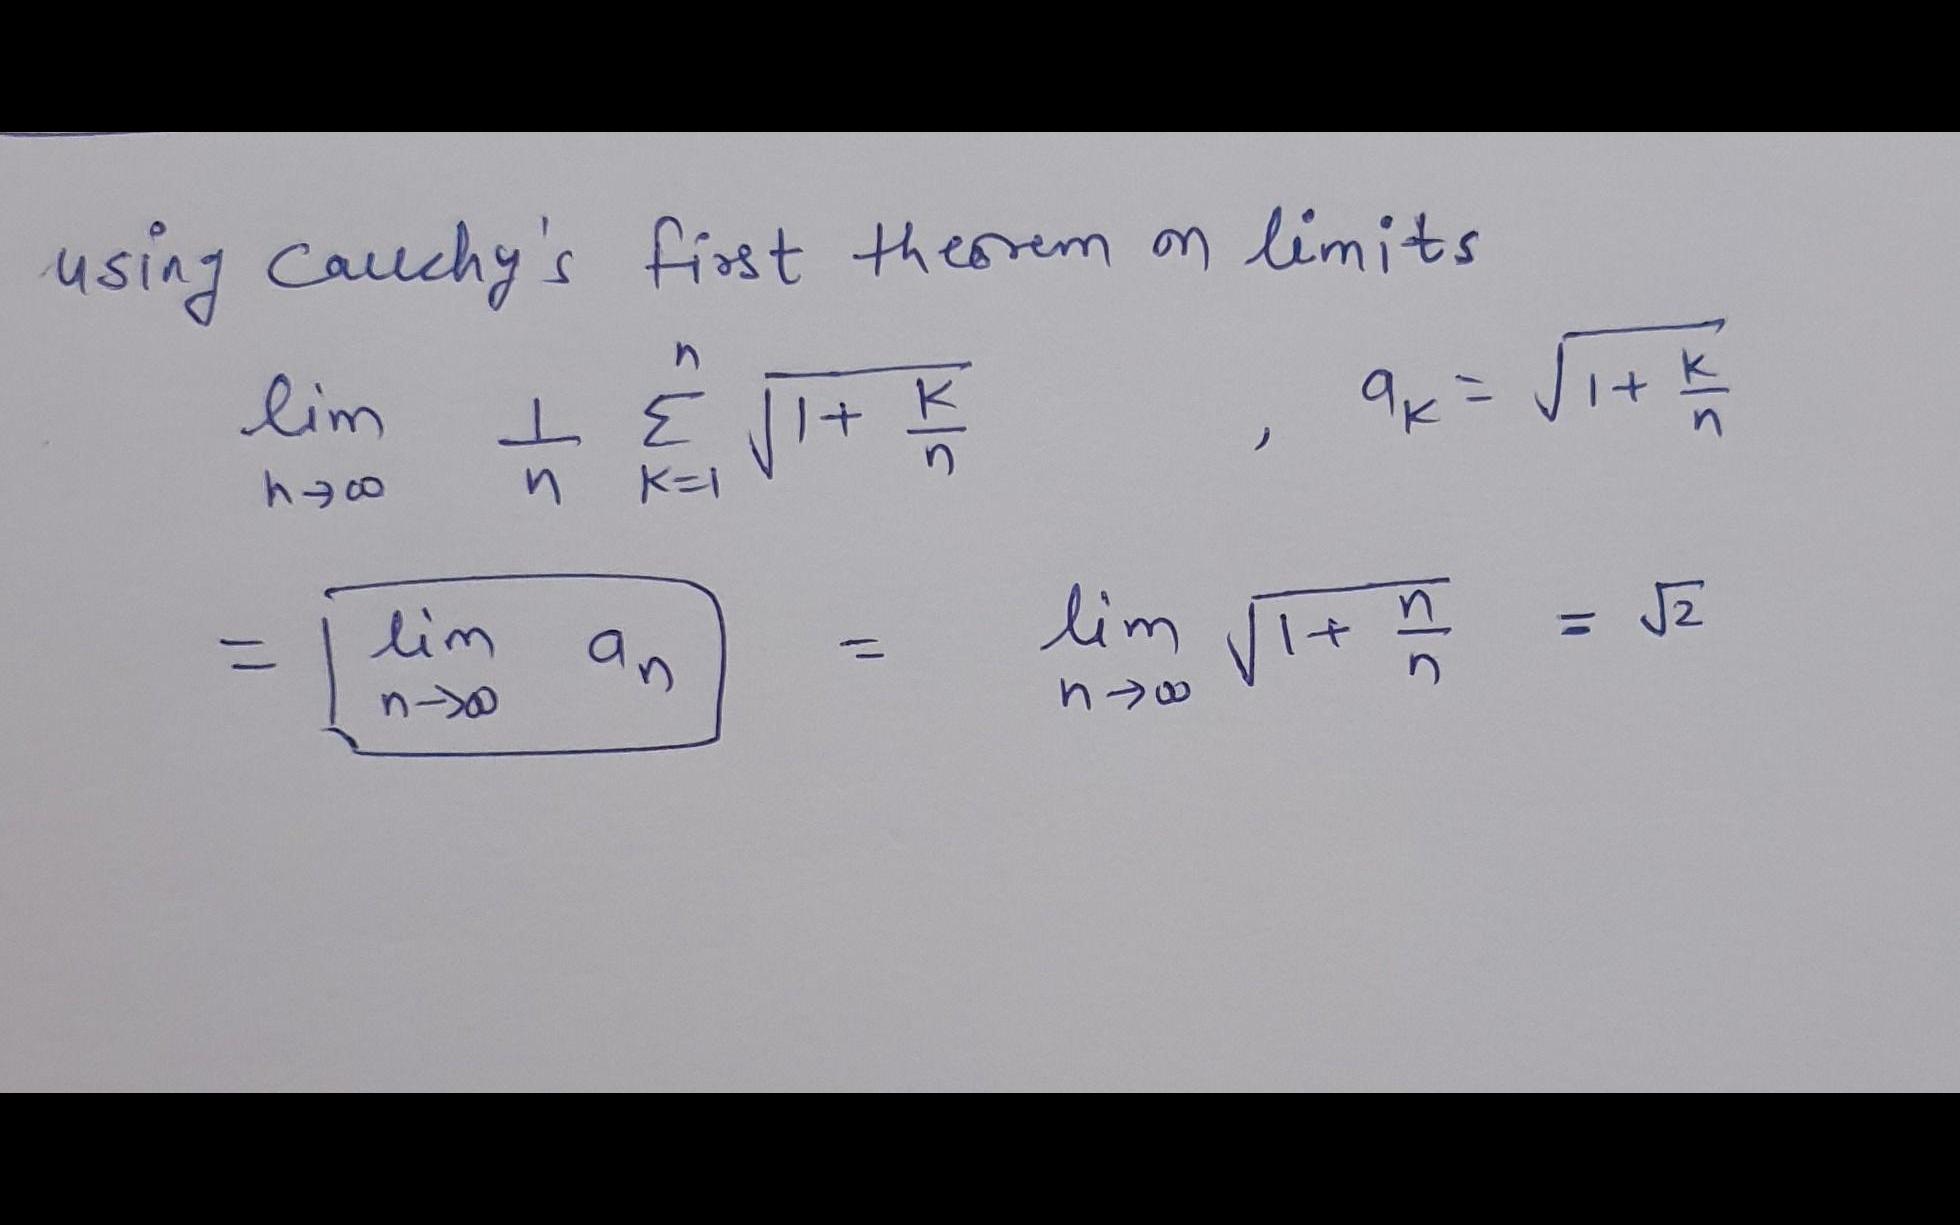 using Cauchy's first theorem on limits
lim n→∞ 1/n Σ k=1 n √(1 + k/n) , a_k = √(1 + k/n)
= lim n→∞ a_n = lim n→∞ √(1 + n/n) = √2